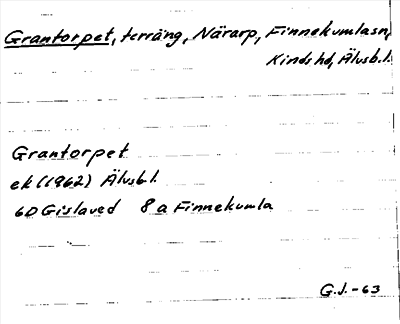 Grantorpet, terräng, Närarp, Finnekumla sn,
Kinds hd, Älvsb. l.
Grantorpet
ek (1962) Älvsb. l.
6D Gislaved 8 a Finnekumla
G.J. -63